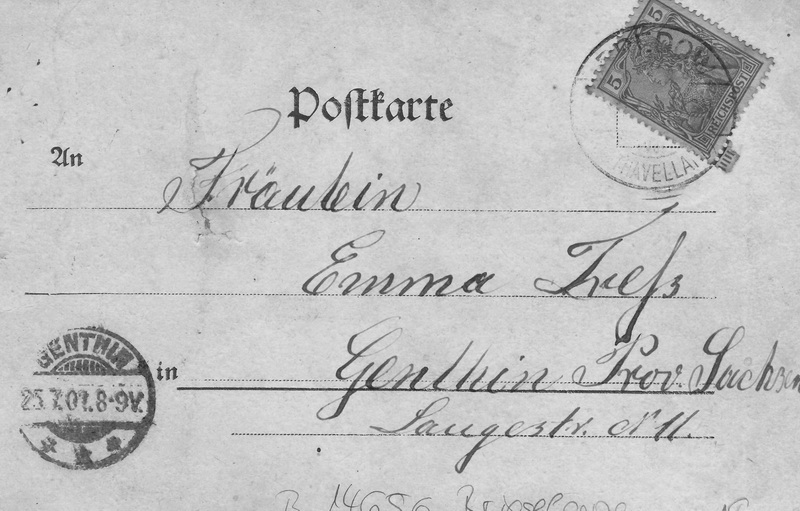 5
5
REICHSPOST
HAVELLAND
Postkarte
An
Fräulein
Emma Treßz
Genthin Prov. Sachsen
in
Langestr. N 11.
GENTHIN
25.7.01.8-9V.
B 14656